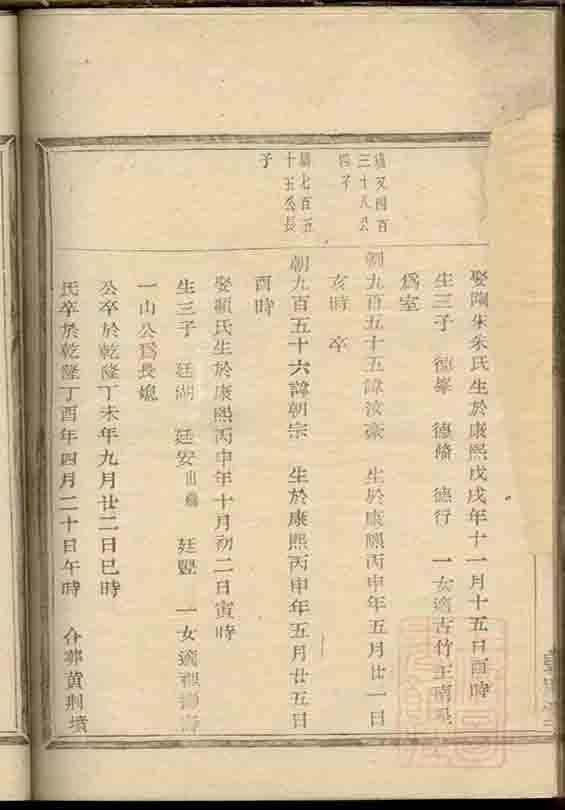 娶陶朱朱氏生於康熙戊戌年十一月十五日酉時
生三子 德峯 德脩 德行 一女適古竹王
爲室
又四百
三十八公
四子
朝九百五十五諱汝豪 生於康熙丙申年五月廿一日
亥時 卒
七百五
十五公長
子
朝九百五十六諱朝宗 生於康熙丙申年五月廿五日
酉時
娶顧氏生於康熙丙申年十月初二日寅時
生三子 廷湖 廷安出繼 廷豎 一女適
一山公爲長媳
公卒於乾隆丁未年九月廿二日巳時
氏卒於乾隆丁酉年四月二十日午時 合葬黄荆墳